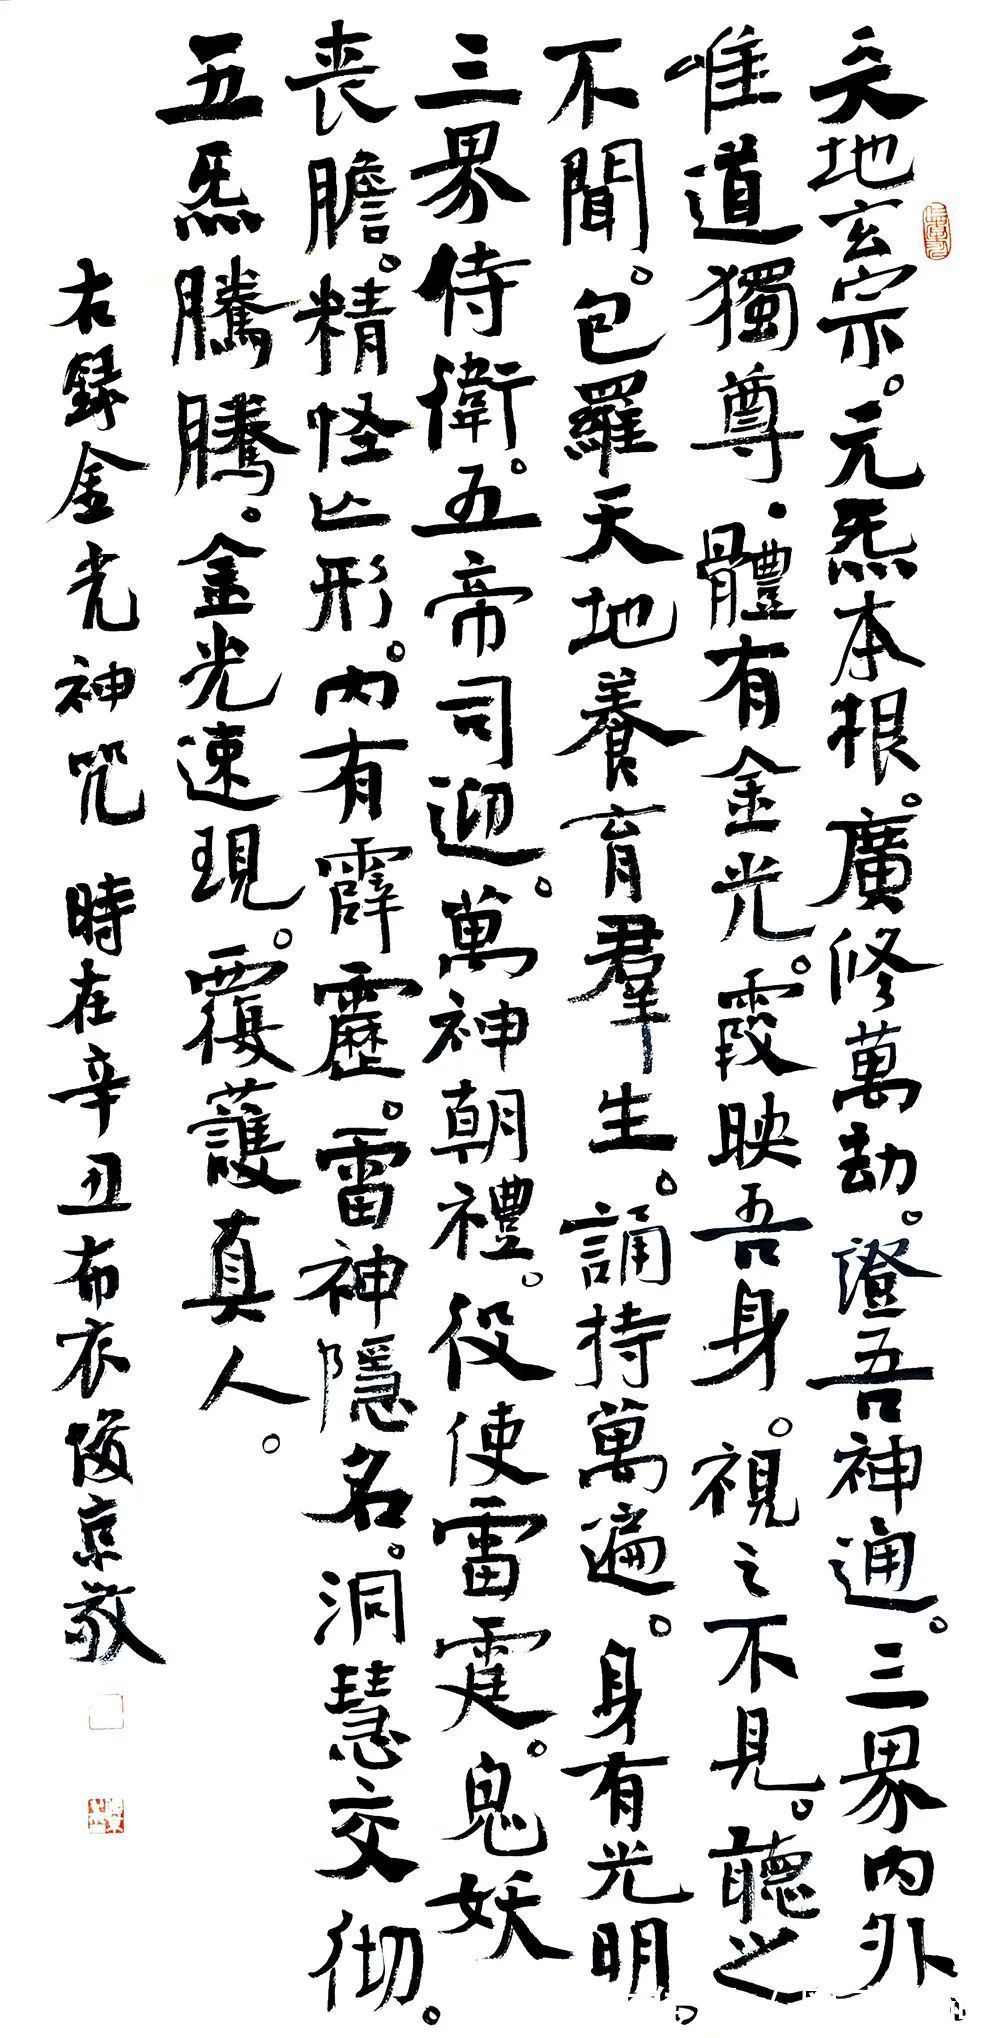 天地玄宗。元炁本根。廣修萬劫。證吾神通。三界內外
唯道獨尊。體有金光。霞映吾身。視之不見。聽之
不聞。包羅天地養育羣生。誦持萬遍。身有光明。
三界侍衛。五帝司迎。萬神朝禮。役使雷霆。鬼妖
喪膽。精怪亾形。內有霹靂。雷神隱名。洞慧交徹。
五炁騰騰。金光速現。覆護真人。
右録金光神咒 時在辛丑布衣俊京敬